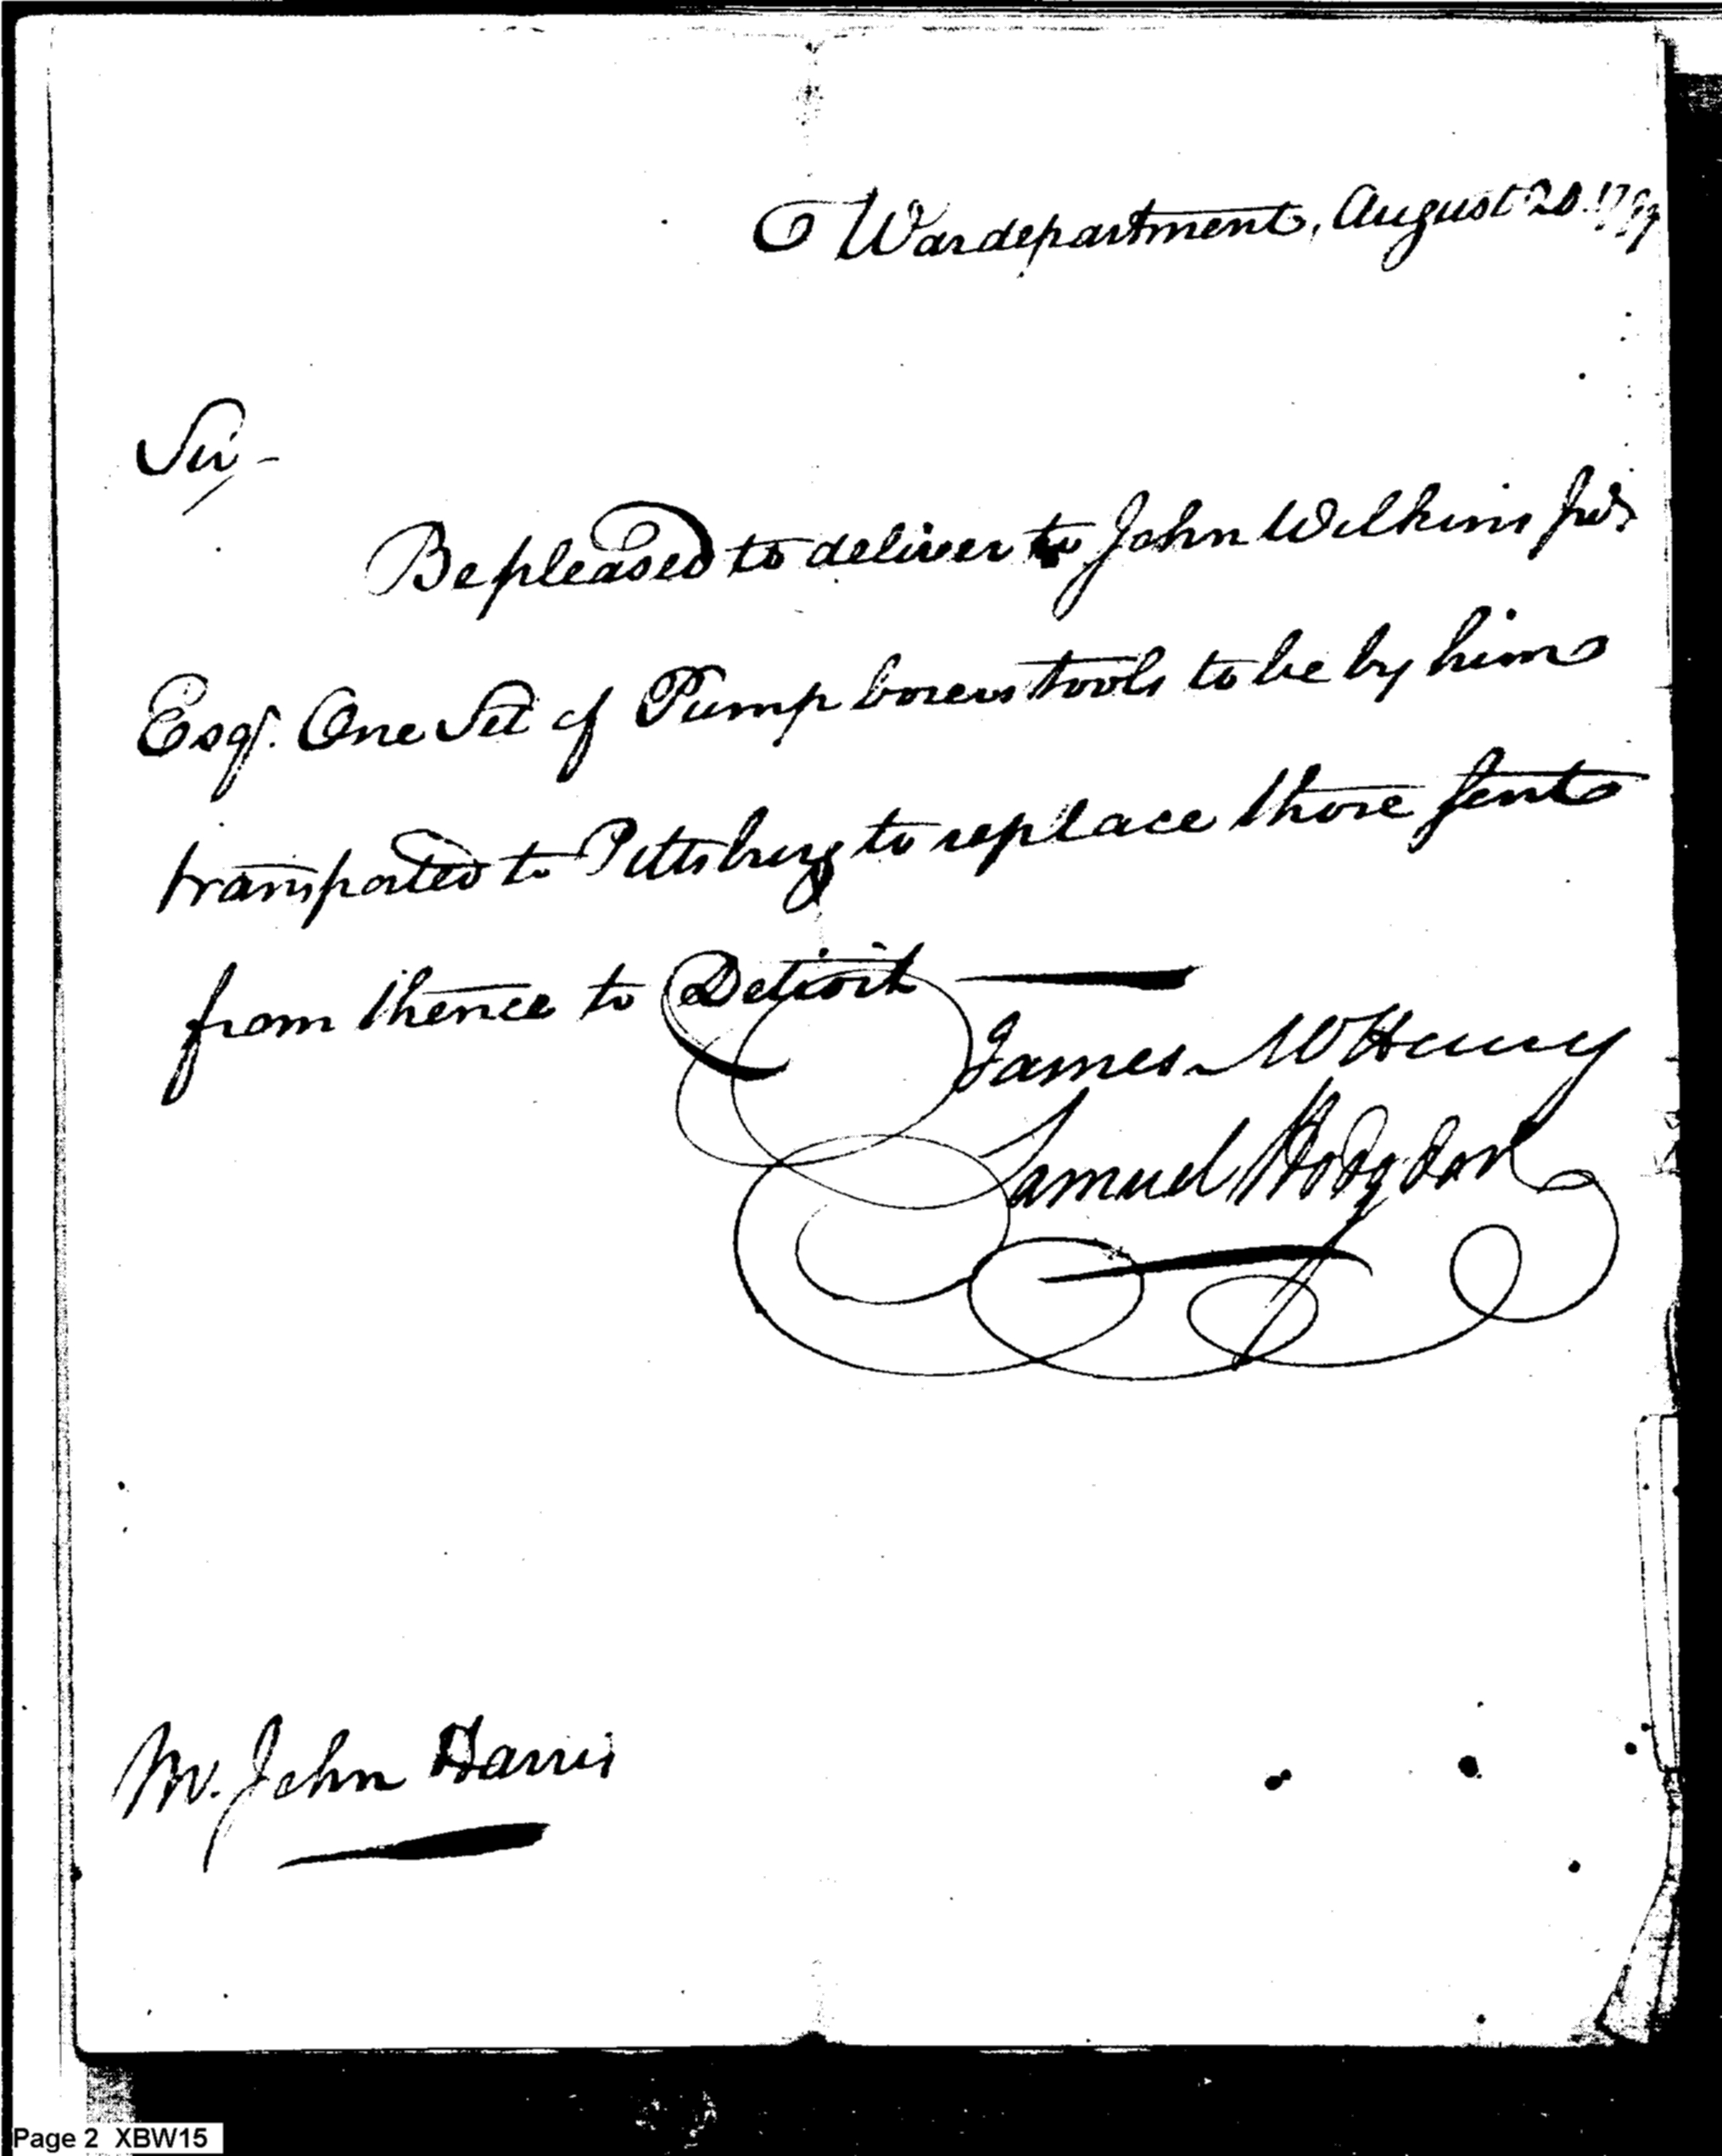 War department, August 20. 1797
Sir,
Be pleased to deliver to John Wilkins junr
Esqr. One Set of Pump borers tools to be by him
transported to Pittsburg to replace those sent
from thence to Detroit
James McHenry
Samuel Hodgdon
Mr. John Harris
Page 2 XBW15